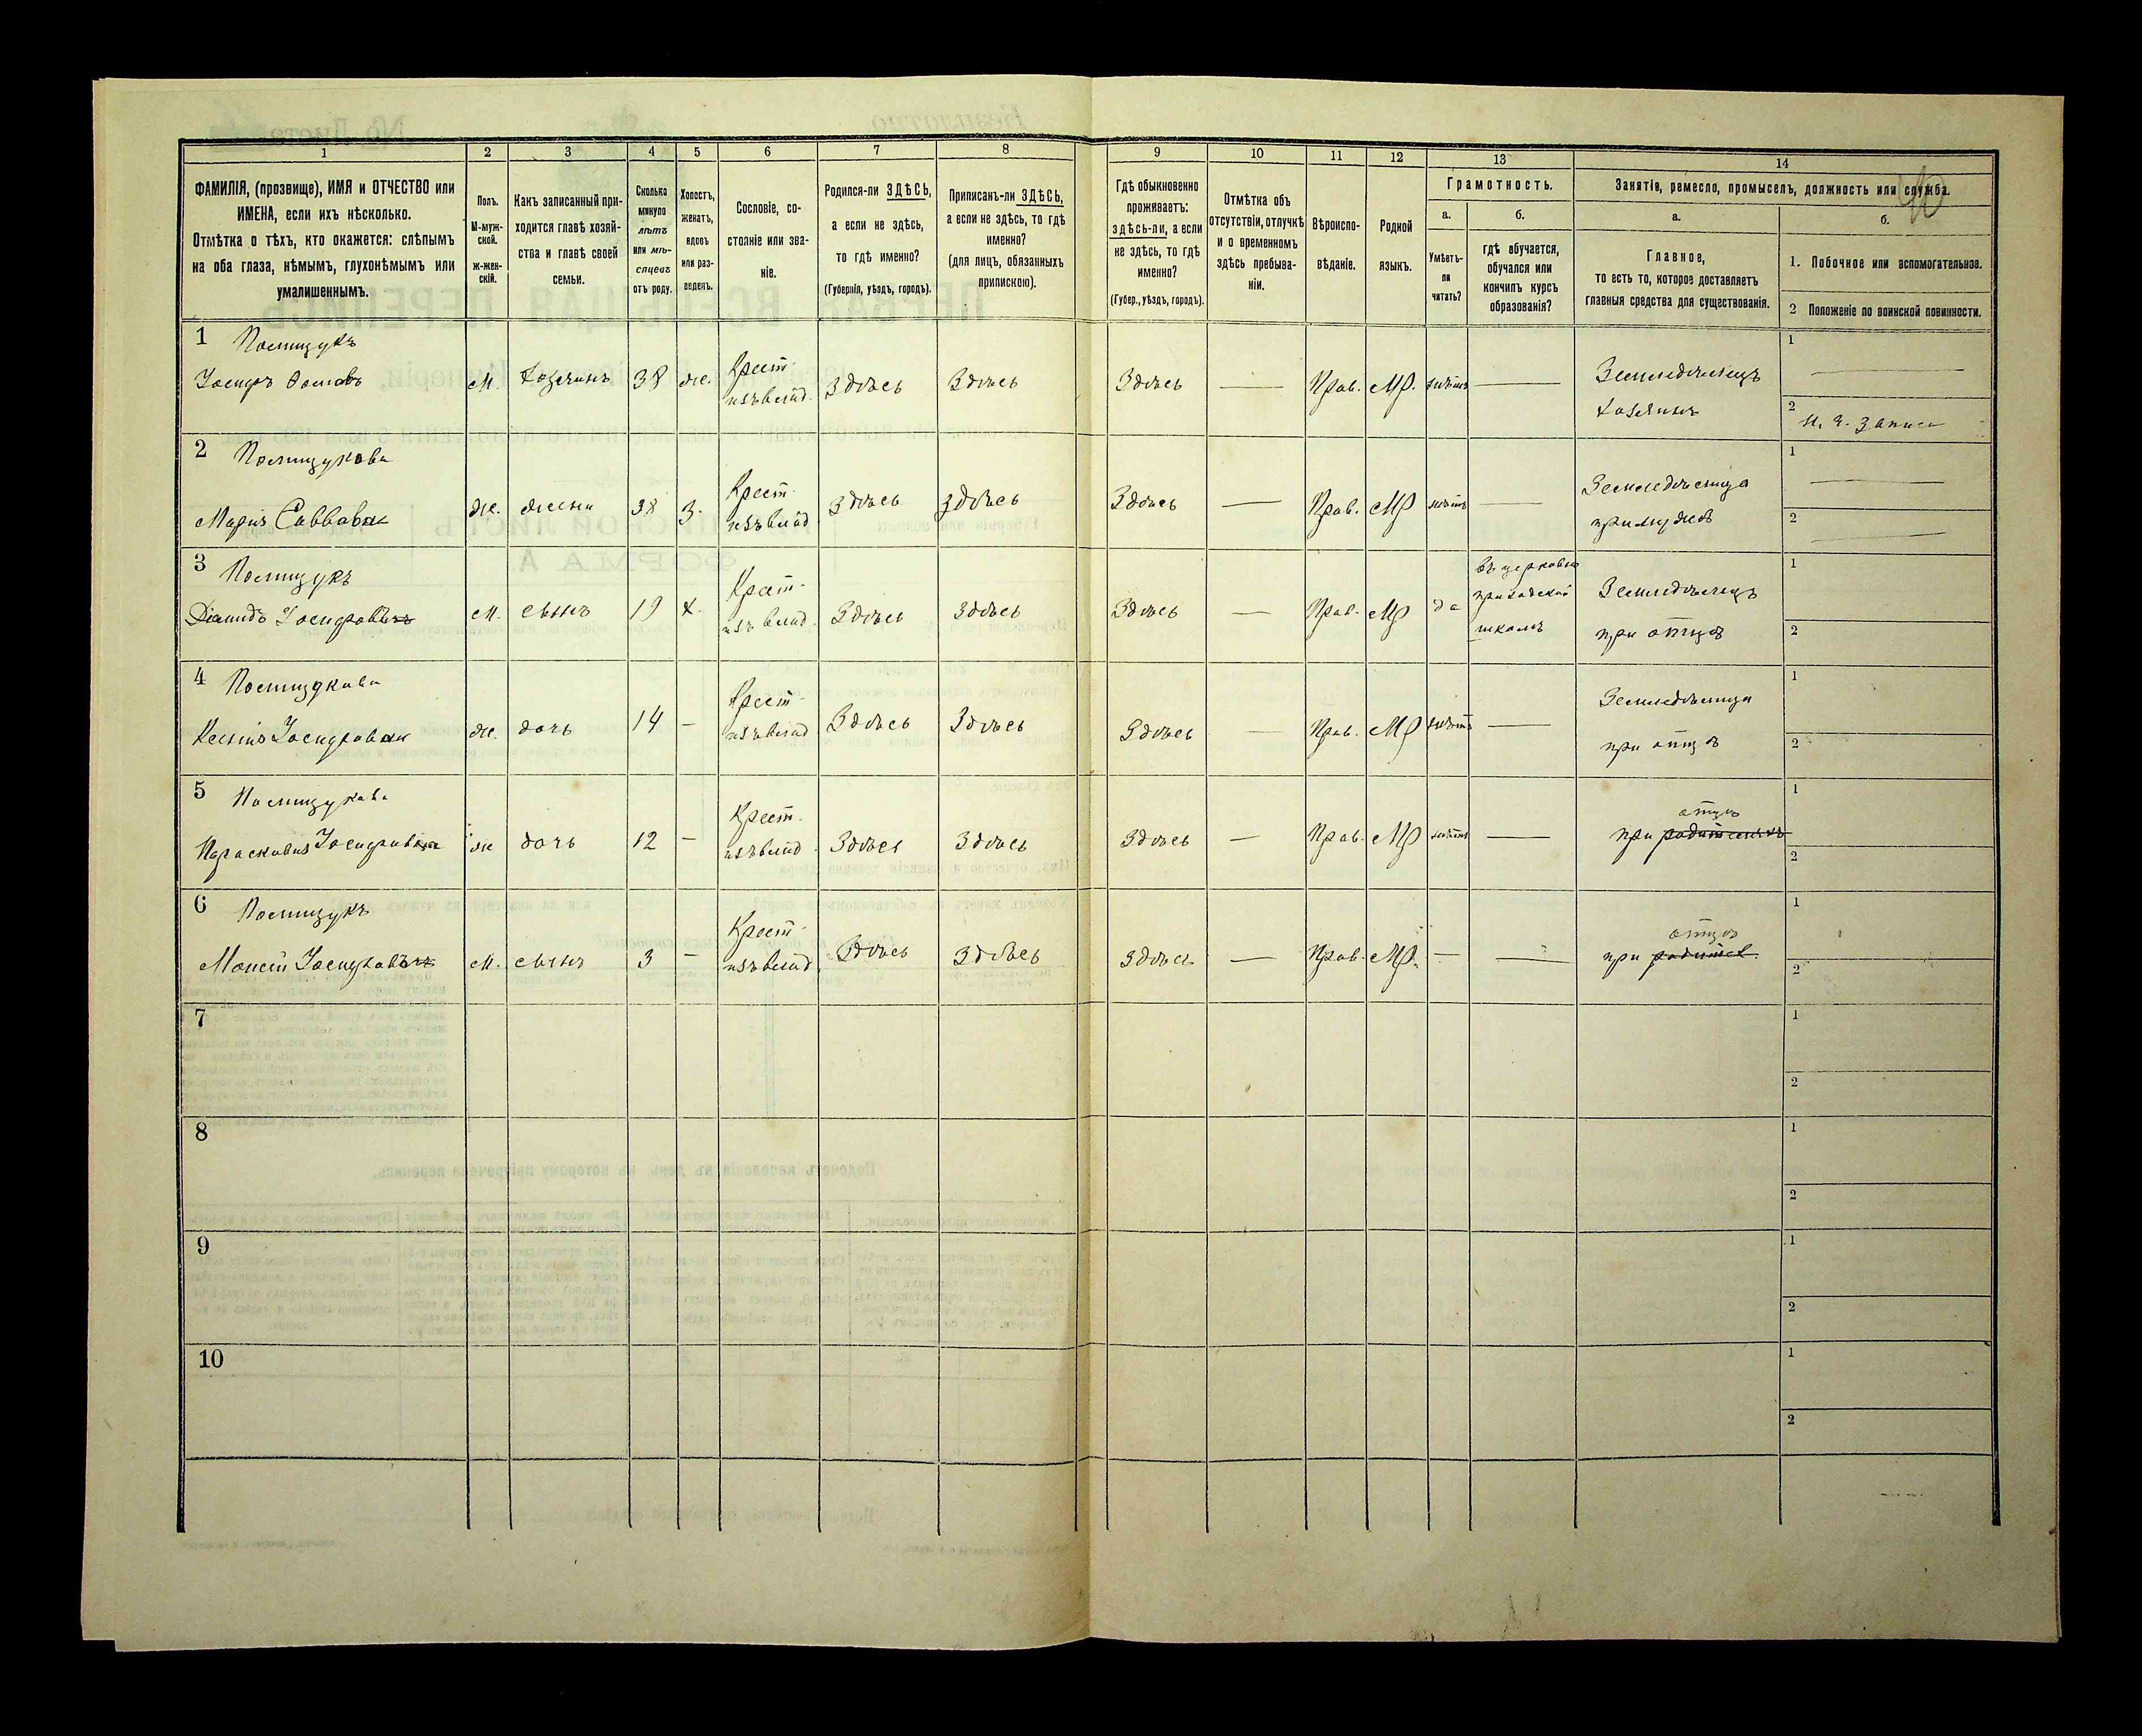 1
2
3
4
5
6
7
8
9
10
11
12
13
14
ФАМИЛІЯ, (прозвище), ИМЯ и ОТЧЕСТВО или
ИМЕНА, если ихъ нѣсколько.
Отмѣтка о тѣхъ, кто окажется: слѣпымъ
на оба глаза, нѣмымъ, глухонѣмымъ или
умалишеннымъ.
Полъ.
М-муж-
ской.
ж-жен-
скій.
Какъ записанный при-
ходится главѣ хозяй-
ства и главѣ своей
семьи.
Сколько
минуло
лѣтъ
или мѣ-
сяцевъ
отъ роду.
Холостъ,
женатъ,
вдовъ
или раз-
веденъ.
Сословіе, со-
стояніе или зва-
ніе.
Родился-ли ЗДѢСЬ,
а если не здѣсь,
то гдѣ именно?
(Губернія, уѣздъ, городъ).
Приписанъ-ли ЗДѢСЬ,
а если не здѣсь, то гдѣ
именно?
(для лицъ, обязанныхъ
припискою).
Гдѣ обыкновенно
проживаетъ:
здѣсь-ли, а если
не здѣсь, то гдѣ
именно?
(Губер., уѣздъ, городъ).
Отмѣтка объ
отсутствіи, отлучкѣ
и о временномъ
здѣсь пребыва-
ніи.
Вѣроиспо-
вѣданіе.
Родной
языкъ.
Грамотность.
а.
Умѣетъ-
ли
читать?
б.
гдѣ обучается,
обучался или
кончилъ курсъ
образованія?
Занятіе, ремесло, промыселъ, должность или служба.
а.
Главное,
то есть то, которое доставляетъ
главныя средства для существованія.
б.
1. Побочное или вспомогательное.
2 Положеніе по воинской повинности.
40
1
м. Хозяинъ 38 же. Крест. изъ влад. Здѣсь Здѣсь Здѣсь — Прав. Мр. нѣтъ — Земледѣлецъ
хозяинъ
1
2
2
Марія Саввова
же. жена 38 З. Крест. изъ влад. Здѣсь Здѣсь Здѣсь — Прав. Мр нѣтъ — Земледѣлица
при мужѣ
1
2
3
м. сынъ 19 х. Крест. изъ влад. Здѣсь Здѣсь Здѣсь — Прав. Мр да
школѣ
Земледѣлецъ
при отцѣ
1
2
4
Ксенія
же. дочь 14 — Крест. изъ влад Здѣсь Здѣсь Здѣсь — Прав. Мр нѣтъ — Земледѣлица
при отцѣ
1
2
5
Параскевия
же дочь 12 — Крест. изъ влад. Здѣсь Здѣсь Здѣсь — Прав. Мр нѣтъ —
отцѣ
при родителяхъ
1
2
6
Моисей
м. сынъ 3 — Крест. изъ влад. Здѣсь Здѣсь Здѣсь — Прав. Мр. — —
отцѣ
при родител.
1
2
7
1
2
8
1
2
9
1
2
10
1
2